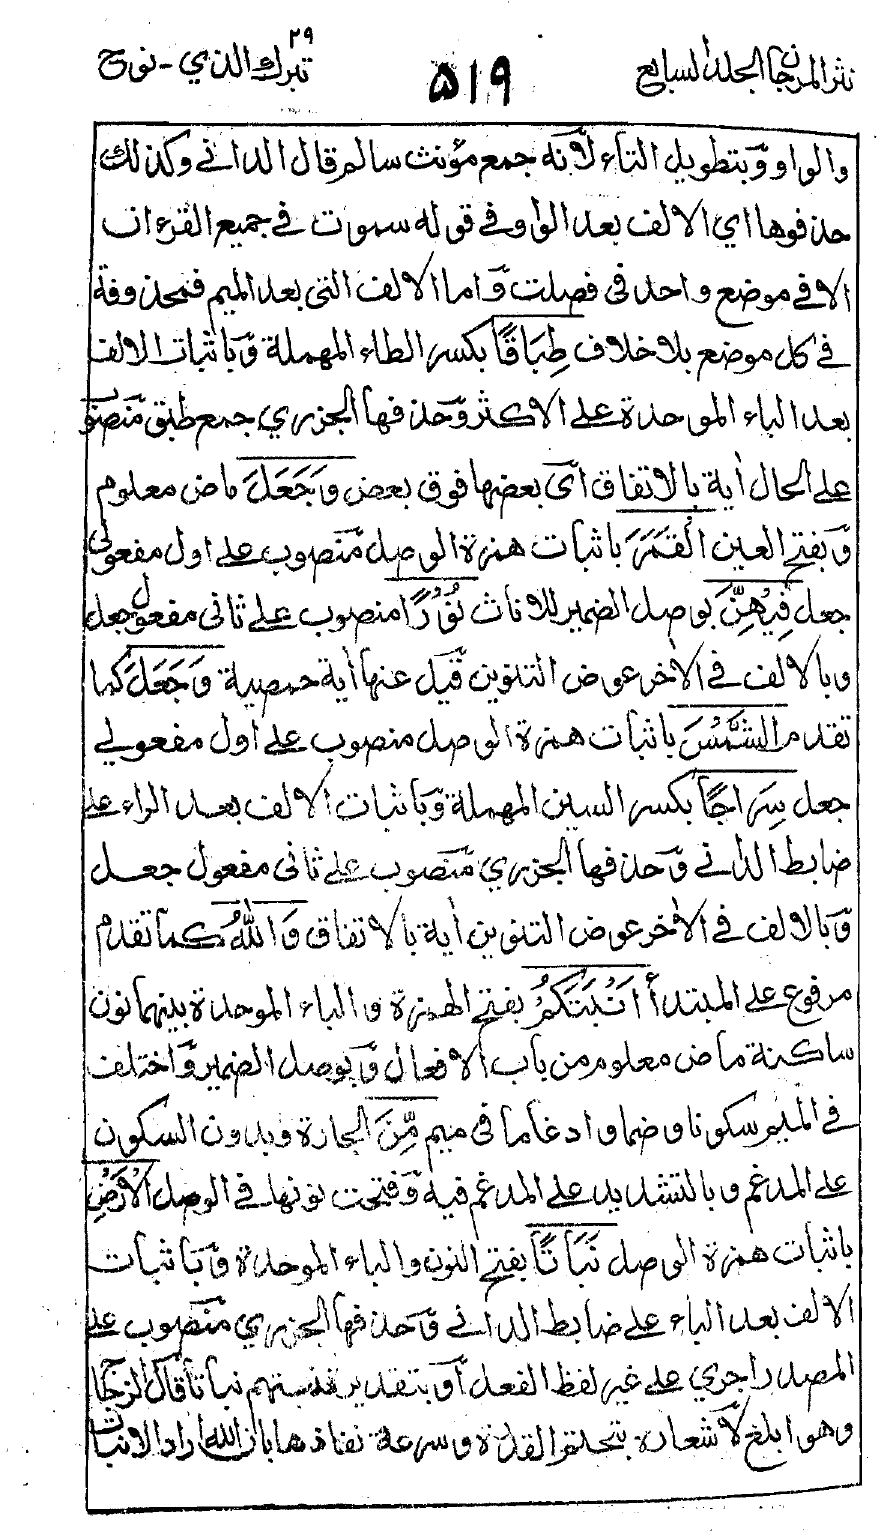 نثر المرجان الجلد السابع
٥١٩
تبرك الذي - نوح ٢٩
والواو وبتطويل التاء لأنه جمع مؤنث سالم قال الداني وكذلك
حذفوها اي الالف بعد الواو في قوله سموت في جميع القرءان
الا في موضع واحد في فصلت وّاما الالف التي بعد الميم فمحذوفة
في كل موضع بلا خلاف طِبَاقًا بكسر الطاء المهملة وّباثبات الالف
بعد الباء الموحدة على الاكثر وّحذفها الجزري جمع طبق مّنصوب
على الحال أية بالاتفاق اىّ بعضها فوق بعض وَجَعَلَ ماض معلوم
وّبفتح العين الْقَمَرَ باثبات همزة الوصل مّنصوب على اول مفعولي
جعل فِيْهِنَّ بوصل الضمير للاناث نُوْرًا منصوب على ثاني مفعولي جعل
وبالالف في الأخر عوض التنوين قّيل عنها أية حمصية وَجَعَلَ كما
تقدم الشَّمْسَ باثبات همزة الوصل منصوب على اول مفعولي
جعل سِرَاجًا بكسر السين المهملة وّباثبات الالف بعد الراء على
ضابط الداني وّحذفها الجزري مّنصوب على ثاني مفعول جعل
وّبالالف في الأخر عوض التنوين أية بالاتفاق وَاللهُ كما تقدم
مرفوع على المبتدأ اَنْبَتَكُمْ بفتح الهمزة والباء الموحدة بينهما نون
ساكنة ماض معلوم من باب الافعال وّبوصل الضمير وّاختلف
في الميم سكونا وضما وادغاما في ميم مِّنَ الجارة وبدون السكون
على المدغم وبالتشديد على المدغم فيه وّفتحت نونها في الوصل الْاَرْضِ
باثبات همزة الوصل نَبَاتًا بفتح النون والباء الموحدة وّباثبات
الالف بعد الباء على ضابط الداني وّحذفها الجزري مّنصوب على
المصدر اجري على غير لفظ الفعل أوّ بتقدير فنبتهم نباتا قال الزجاج
وهو ابلغ لأشعاره بتحلق القدرة وسرعة نفاذها بان الله اراد الانبات